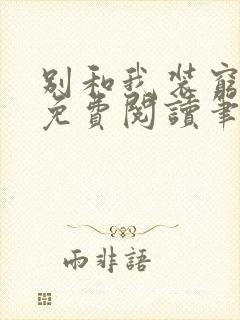 别和我装窮
免費閱讀筆
雨非語